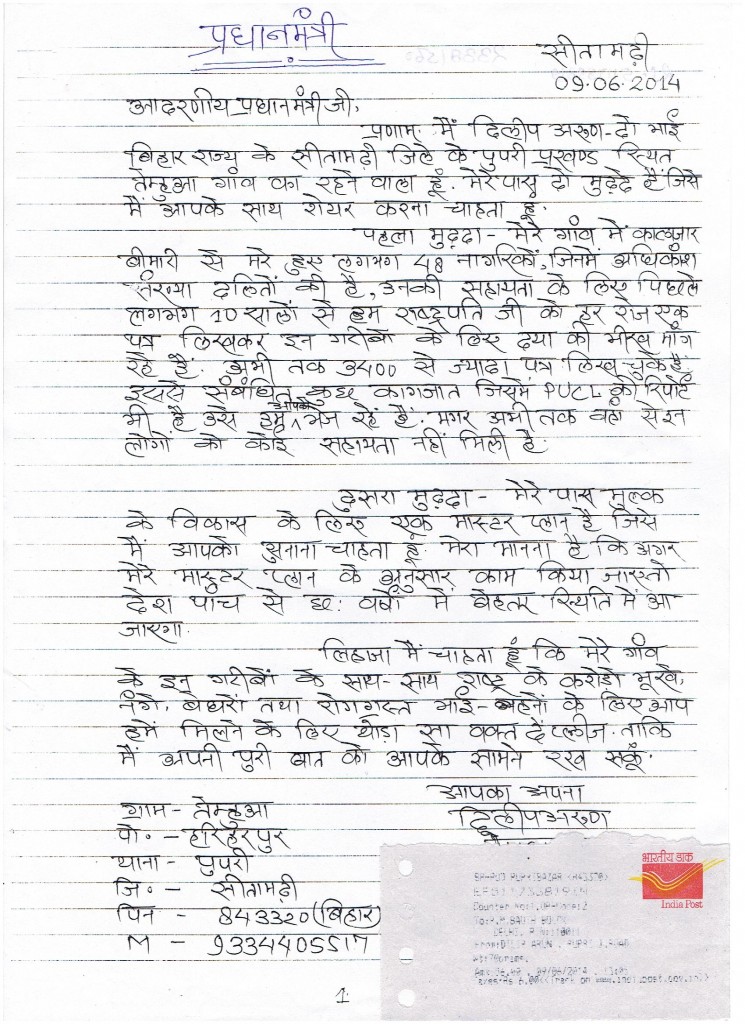 प्रधानमंत्री
सीतामढ़ी
09.06.2014
आदरणीय प्रधानमंत्री जी,
प्रणाम. मैं दिलीप अरूण-दो भाई
बिहार राज्य के सीतामढ़ी जिले के पुपरी प्रखण्ड स्थित
तेम्हुआ गाँव का रहने वाला हूं. मेरे पास दो मुद्दे हैं जिसे
मैं आपके साथ शेयर करना चाहता हूं.
पहला मुद्दा - मेरे गाँव में कालाजार
बीमारी से मरे हुए लगभग 48 नागरिकों, जिनमें अधिकांश
संख्या दलितों की है, उनकी सहायता के लिए पिछले
लगभग 10 सालों से हम राष्ट्रपति जी को हर रोज एक
पत्र लिखकर इन गरीबों के लिए दया की भीख माँग
रहे हैं. अभी तक 3400 से ज्यादा पत्र लिख चुके हैं.
इससे संबंधित कुछ कागजात जिसमें PUCL की रिपोर्ट
भी है उसे हम आपको भेज रहे हैं. मगर अभी तक वहां से इन
लोगों को कोई सहायता नहीं मिली है.
दुसरा मुद्दा - मेरे पास मुल्क
के विकास के लिए एक मास्टर प्लान है जिसे
मैं आपको सुनाना चाहता हूं. मेरा मानना है कि अगर
मेरे मास्टर प्लान के अनुसार काम किया जाए तो
देश पांच से छ: वर्षों में बेहतर स्थिति में आ
जाएगा.
लिहाजा मैं चाहता हूं कि मेरे गाँव
के इन गरीबों के साथ-साथ राष्ट्र के करोड़ों भूखे,
नंगे, बेघरों तथा रोगग्रस्त भाई-बहनों के लिए आप
हमें मिलने के लिए थोड़ा सा वक्त दें प्लीज. ताकि
मैं अपनी पुरी बात को आपके सामने रख सकूं.
आपका अपना
दिलीप अरूण
ग्राम - तेम्हुआ
पो. - हरिहरपुर
थाना - पुपरी
जि. - सीतामढ़ी
पिन - 843320 (बिहार)
M - 9334405517
भारतीय डाक
India Post
Counter No:1,OP-Code:2
Wt:70grams,
1.